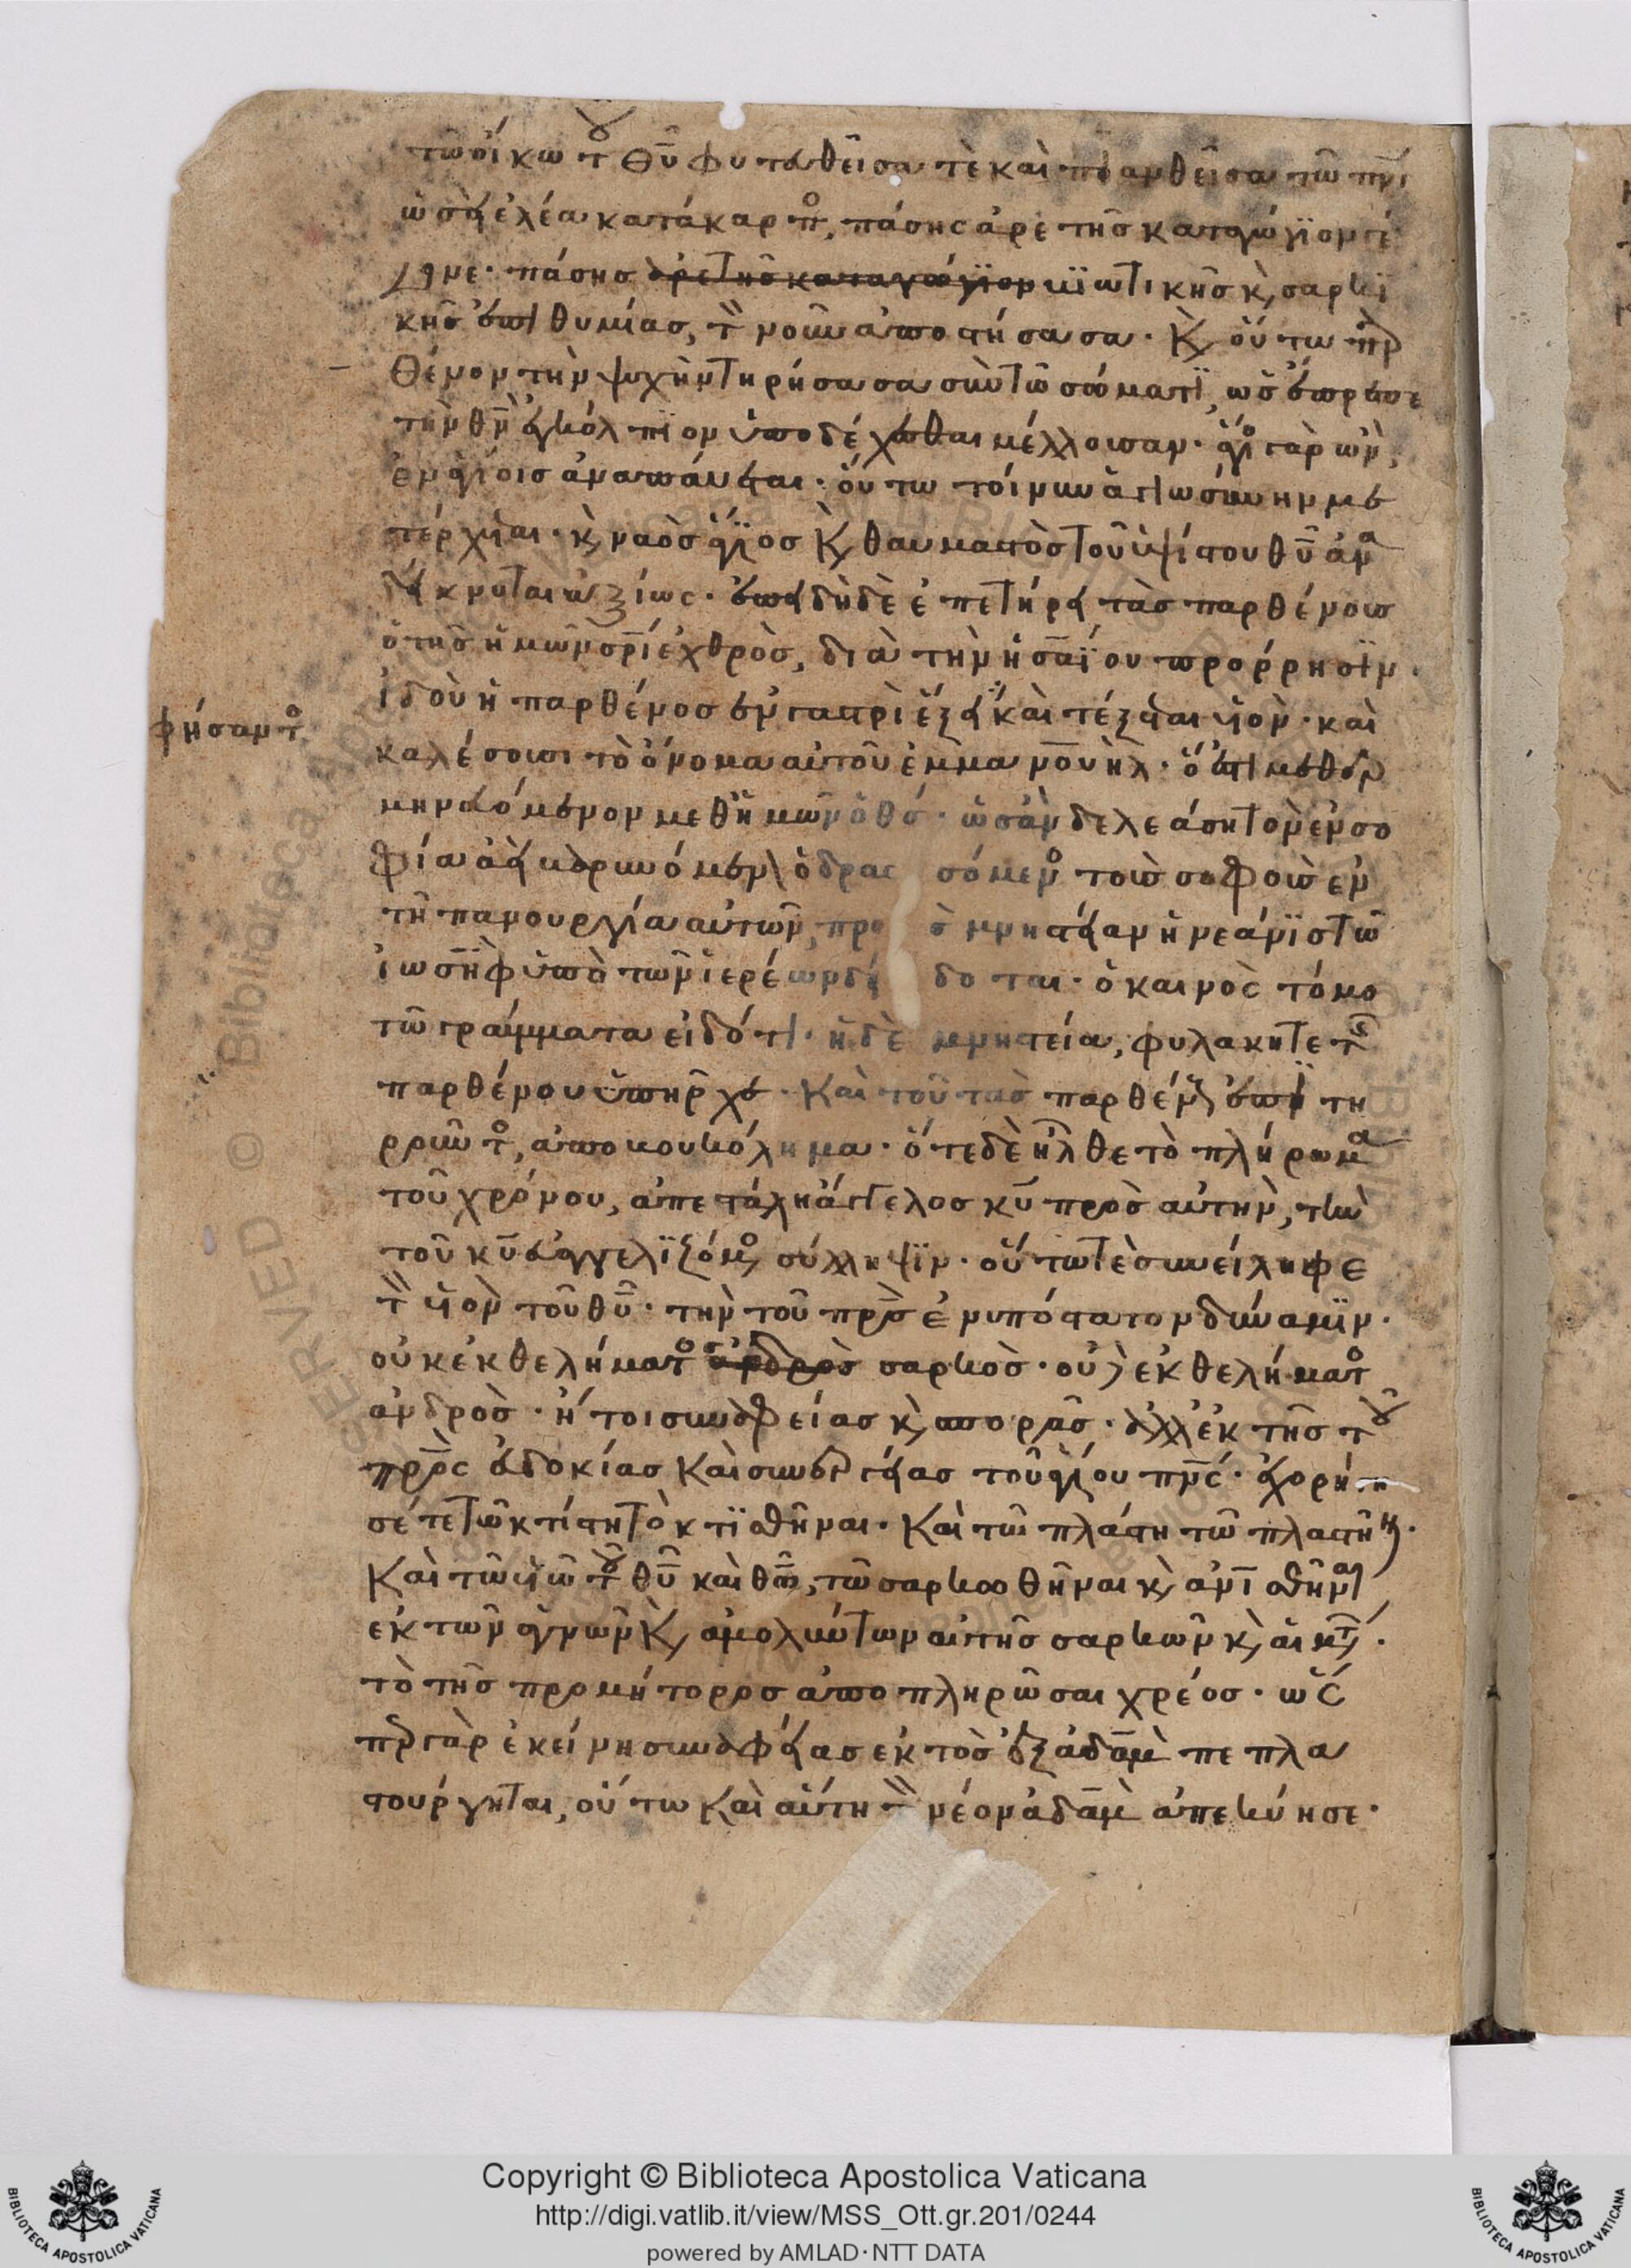 τῶ οἴκω τοῦ θῦ φυτευθεῖσά τε καὶ πιανθεῖσα τῶ πνι
ὡσεὶ ἐλέα κατάκαρπος, πάσης ἀρετῆς καταγώγιον γέ
γονε· πάσης ἀρετῆς καταγώγιον βιωτικῆς καὶ σαρκι
κῆς ἐπιθυμίας, τὸν νοῦν ἀποστήσασα· καὶ οὕτω παρ
θένον τὴν ψυχὴν τηρήσασα σὺν τῶ σώματι, ὡς ἔπρεπε
τὴν θν ἐγκόλπιον ὑποδέχεσθαι μέλλουσαν· ἅγιος γὰρ ὢν,
ἐν ἁγίοις ἀναπαύεται· οὕτω τοίνυν ἁγιωσύνην με
τέρχεται· καὶ ναὸς ἅγιος καὶ θαυμαστὸς τοῦ ὑψίστου θῦ ἀνα
δείκνυται ἀξίως· ἐπειδὴ δὲ ἐπετήρει τὰς παρθένους
ὁ τῆς ἡμῶν σρίας ἐχθρὸς, διὰ τὴν ἡσαΐου πρόρρησιν.
ἰδοὺ ἡ παρθένος ἐν γαστρὶ ἕξει καὶ τέξεται υἱὸν· καὶ
φήσαντος
καλέσουσι τὸ ὄνομα αὐτοῦ ἐμμανουὴλ· ὅ ἐστι μεθερ
μηνευόμενον μεθ' ἡμῶν ὁ θσ· ὡς ἂν δελεάση τὸν ἐν σο
φία ἀεὶ
ὁ δρασσόμενος τοὺς σοφοὺς ἐν
τῆ πανουργία αὐτῶν, προς μνηστείαν ἡ νεάνις τῶ
ἰωσὴφ ὑπὸ τῶν ἱερέων δίδοται· ὁ καινὸς τόμος
τῶ γράμματα εἰδότι· ἡ δὲ μνηστεία, φυλακή τε τῆς
παρθένου ὑπῆρχε· καὶ τοῦ τὰς παρθένους ἐπιτη
ροῦντος, ἀποβουκόλημα· ὅτε δὲ ἦλθε τὸ πλήρωμα
τοῦ χρόνου, ἀπεστάλη ἄγγελος κῦ πρὸς αὐτὴν, τὴν
τοῦ κῦ εὐαγγελιζόμενος σύλληψιν· οὕτω τε συνείληφε
τὸν υἱὸν τοῦ θῦ· τὴν τοῦ πρσ ἐνυπόστατον δύναμιν·
οὐκ ἐκ θελήματος ἀνδρὸς σαρκὸς· οὐδὲ ἐκ θελήματος
ἀνδρὸς· ἤτοι συναφείας καὶ σπορᾶς· ἀλλ' ἐκ τῆς τοῦ
πρσ εὐδοκίας καὶ συνεργείας τοῦ ἁγίου πνσ· ἐχορήγη
σέ τε τῶ κτίστη τὸ κτισθῆναι· καὶ τῶ πλάστη τῶ πλασθῆναι·
καὶ τῶ υἱῶ τοῦ θῦ καὶ θῶ, τῶ σαρκωθῆναι καὶ ἀνισθῆναι
ἐκ τῶν ἁγνῶν καὶ ἀμολύντων αὐτῆς σαρκῶν καὶ αἱμάτων.
τὸ τῆς προμήτορος ἀποπληρῶσαι χρέος· ὥσ
περ γὰρ ἐκείνη συναφείας ἐκτὸς ἐξ ἀδὰμ πεπλα
στούργηται, οὕτω καὶ αὕτη τὸν νέον ἀδὰμ ἀπεκύησε·
Copyright © Biblioteca Apostolica Vaticana
http://digi.vatlib.it/view/MSS_Ott.gr.201/0244
powered by AMLAD·NTT DATA
BIBLIOTECA APOSTOLICA VATICANA
BIBLIOTECA APOSTOLICA VATICANA